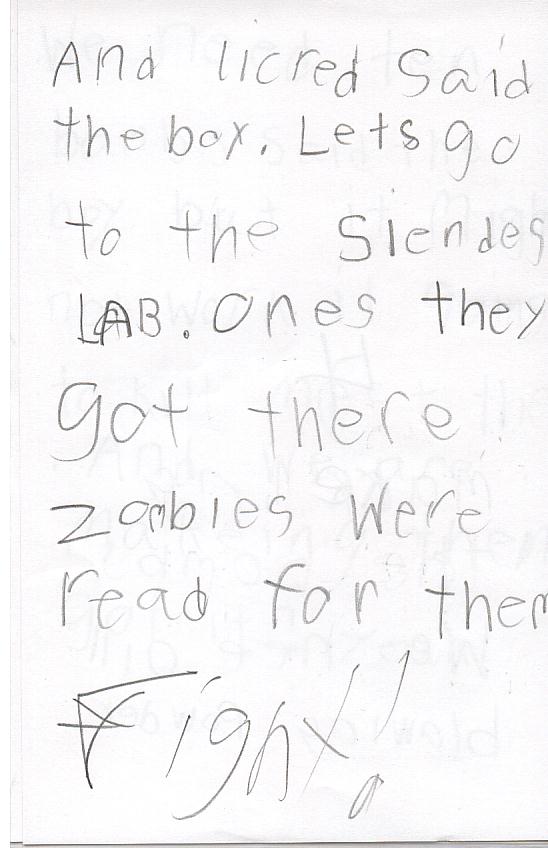 And licred Said
the box. Lets go
to the Siendes
LAB. Ones they
got there
zombies were
read for them
Fight!